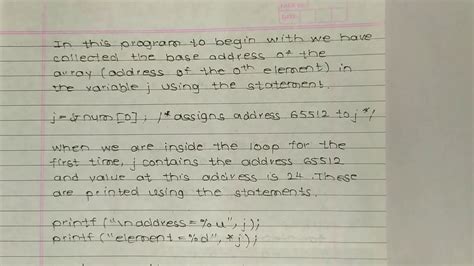 In this program to begin with we have
collected the base address of the
array (address of the 0th element) in
the variable j using the statement.
j=&num[0]; /*assigns address 65512 to j*/
when we are inside the loop for the
first time, j contains the address 65512
and value at this address is 24. These
are printed using the statements.
printf("\naddress=%u",j);
printf("element=%d",*j);